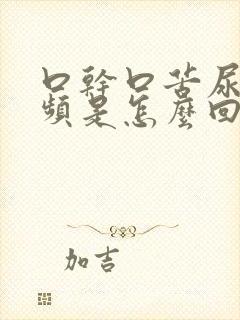 口幹口苦尿
頻是怎麼回
加吉